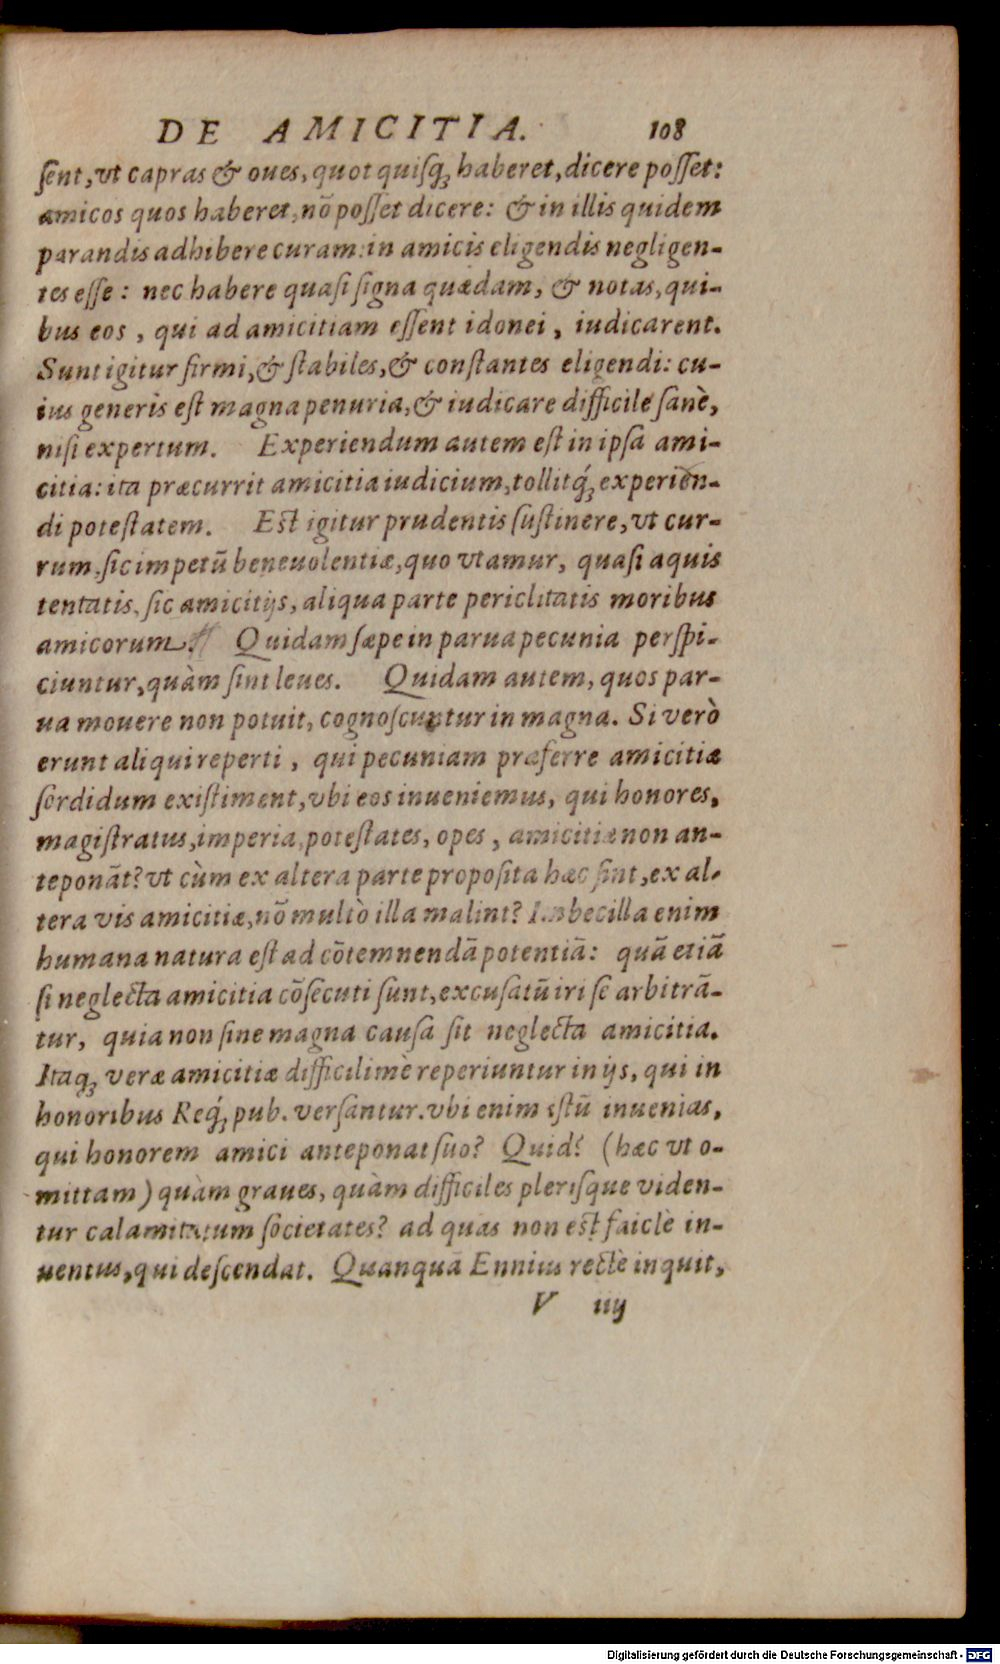 DE AMICITIA. 108
ſent, vt capras & oues, quot quiſq; haberet, dicere poſſet:
amicos quos haberet, nõ poſſet dicere: & in illis quidem
parandis adhibere curam: in amicis eligendis negligen-
tes eſſe: nec habere quaſi ſigna quædam, & notas, qui-
bus eos, qui ad amicitiam eſſent idonei, iudicarent.
Sunt igitur firmi, & ſtabiles, & conſtantes eligendi: cu-
ius generis eſt magna penuria, & iudicare difficile ſanè,
niſi expertum. Experiendum autem eſt in ipſa ami-
citia: ita præcurrit amicitia iudicium, tollitq́; experien-
di poteſtatem. Eſt igitur prudentis ſuſtinere, vt cur-
rum, ſic impetũ beneuolentiæ, quo vtamur, quaſi aquis
tentatis, ſic amicitijs, aliqua parte periclitatis moribus
amicorum. Quidam ſæpe in parua pecunia perſpi-
ciuntur, quàm ſint leues. Quidam autem, quos par-
ua mouere non potuit, cognoſcuntur in magna. Si verò
erunt aliqui reperti, qui pecuniam præferre amicitiæ
ſordidum exiſtiment, vbi eos inueniemus, qui honores,
magiſtratus, imperia, poteſtates, opes, amicitiæ non an-
teponãt? vt cùm ex altera parte propoſita hæc ſint, ex al-
tera vis amicitiæ, nõ multò illa malint? Imbecilla enim
humana natura eſt ad cõtemnendã potentiã: quã etiã
ſi neglecta amicitia cõſecuti ſunt, excuſatũ iri ſe arbitrã-
tur, quia non ſine magna cauſa ſit neglecta amicitia.
Itaq; veræ amicitiæ difficilimè reperiuntur in ijs, qui in
honoribus Req́; pub. verſantur. vbi enim iſtũ inuenias,
qui honorem amici anteponat ſuo? Quid? (hæc vt o-
mittam) quàm graues, quàm difficiles pleriſque viden-
tur calamitatum ſocietates? ad quas non eſt faiclè in-
uentus, qui deſcendat. Quanquã Ennius rectè inquit,
V iiij
Digitalisierung gefördert durch die Deutsche Forschungsgemeinschaft - DFG